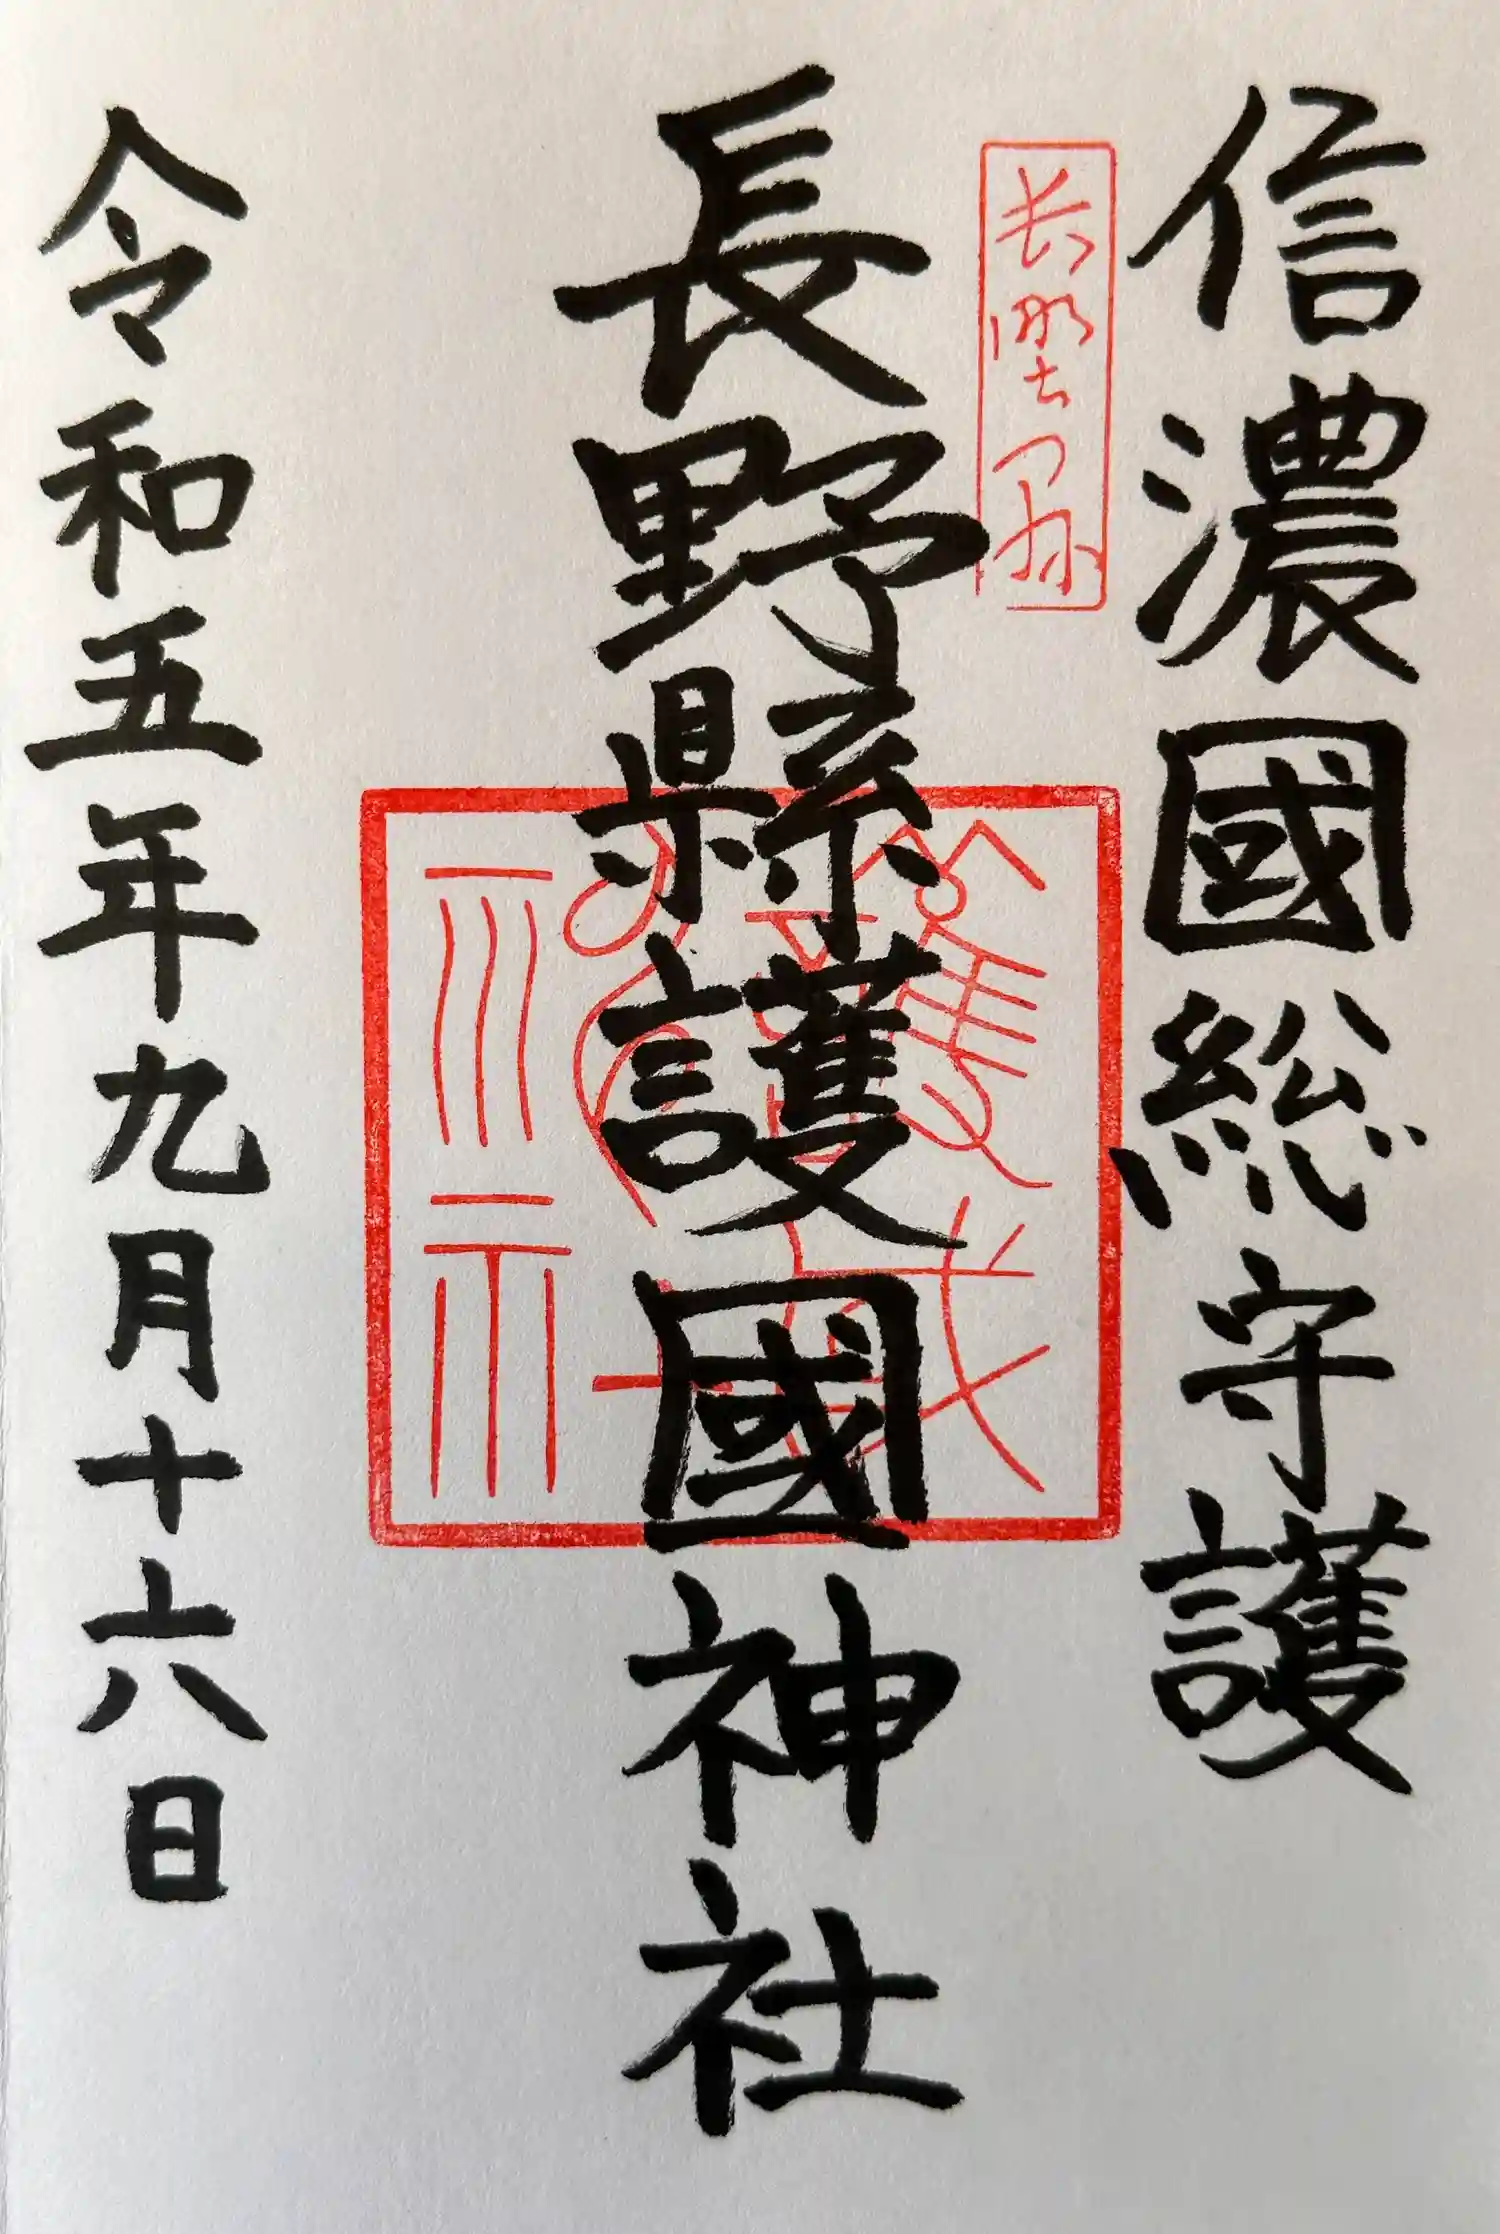 信濃國総守護
長野縣護國神社
令和五年九月十六日